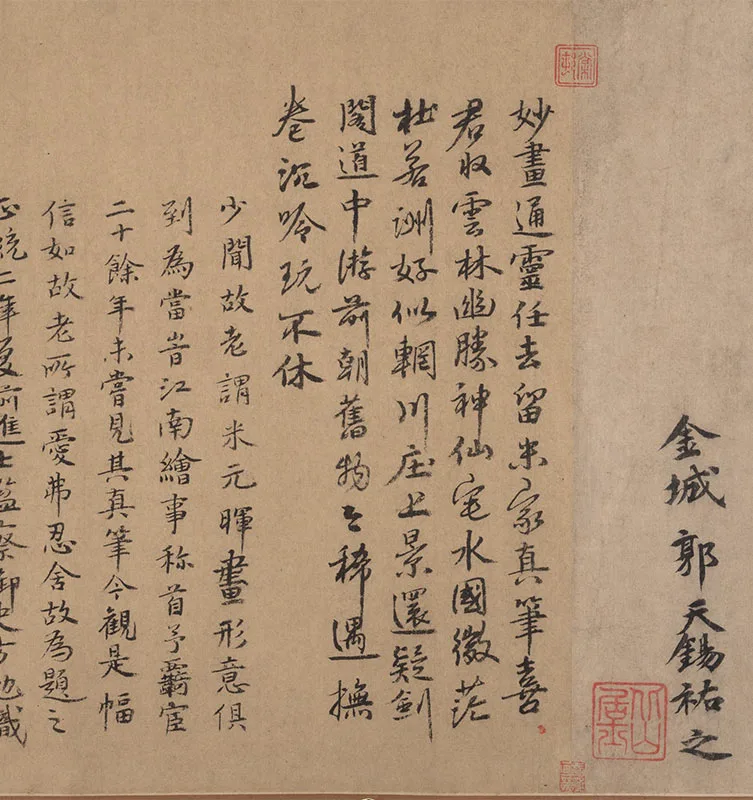 金城郭天錫祐之
妙畫通靈任去留米家真筆喜
君收雲林幽勝神仙宅水國微茫
杜若洲好似輞川庄上景還疑劍
閣道中游前朝舊物今稀遇撫
卷沉吟玩不休
少聞故老謂米元暉畫形意俱
到為當旹江南繪事称首予覊宦
二十餘年未嘗見其真筆今觀是幅
信如故老所謂愛弗忍舍故為題之
正統二年夏前進士監察御史方勉識